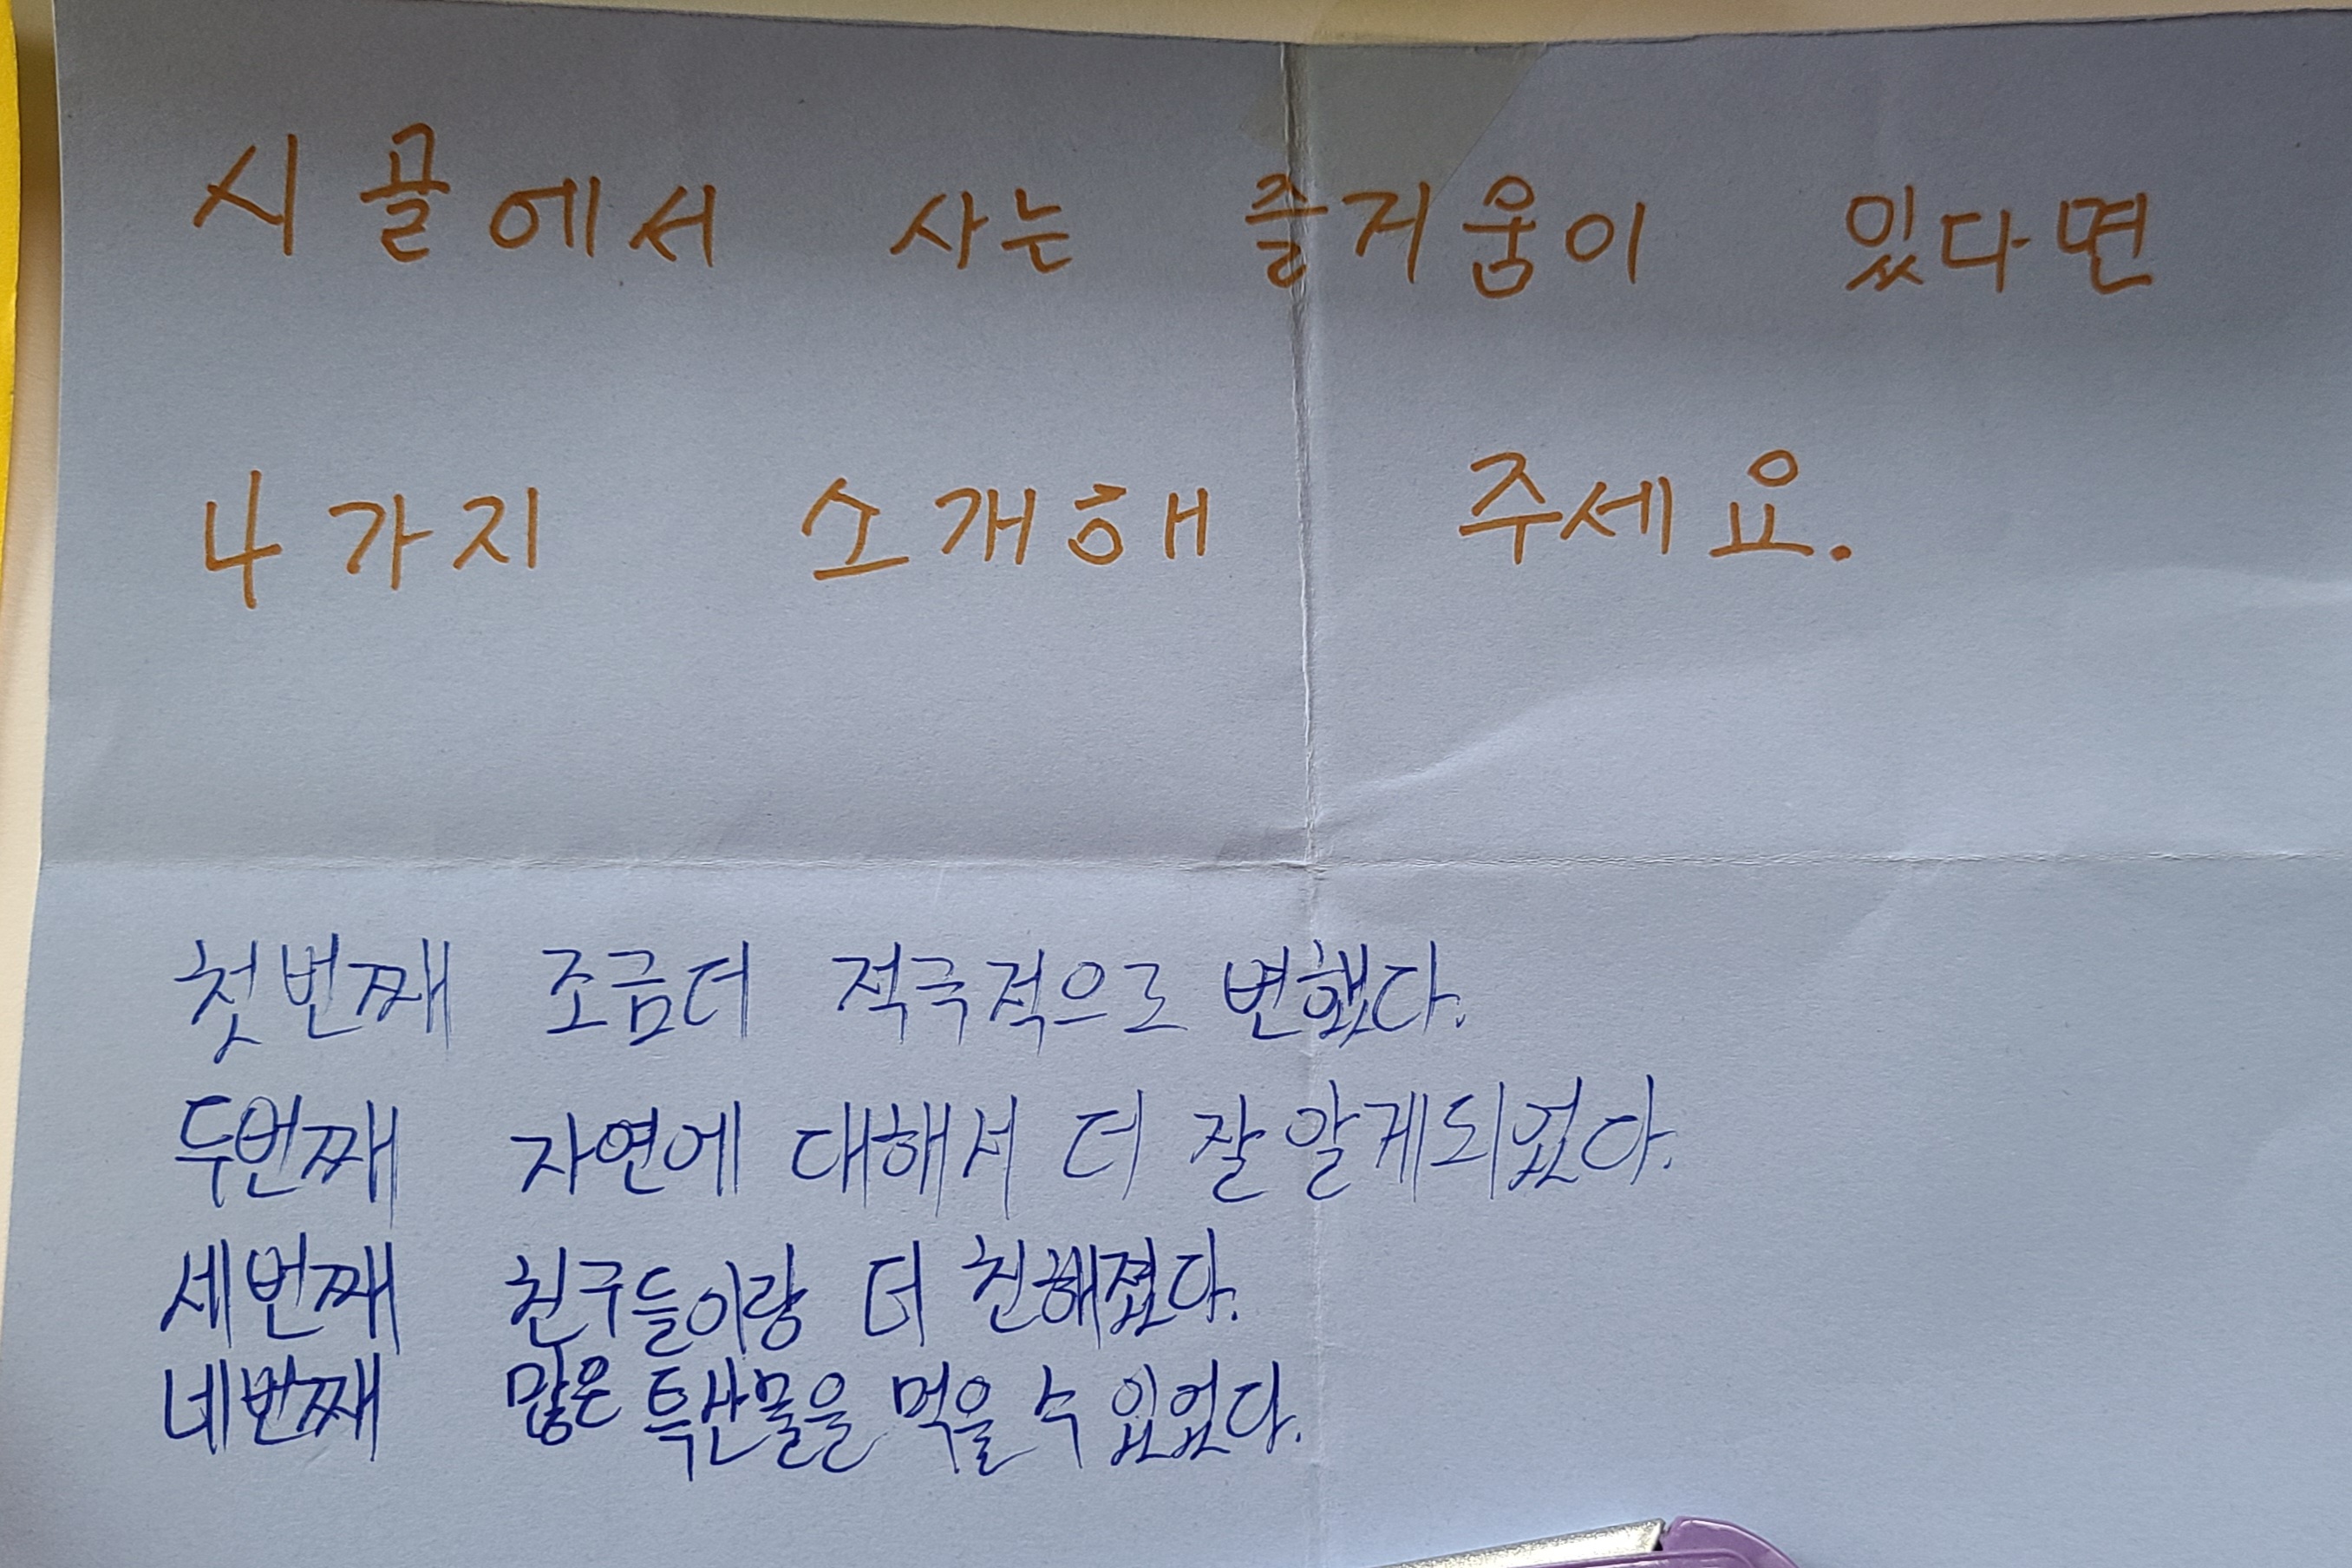 시골에서 사는 즐거움이 있다면
4가지 소개해 주세요.
첫번째 조금더 적극적으로 변했다.
두번째 자연에 대해서 더 잘 알게되었다.
세번째 친구들이랑 더 친해졌다.
네번째 많은 특산물을 먹을 수 있었다.